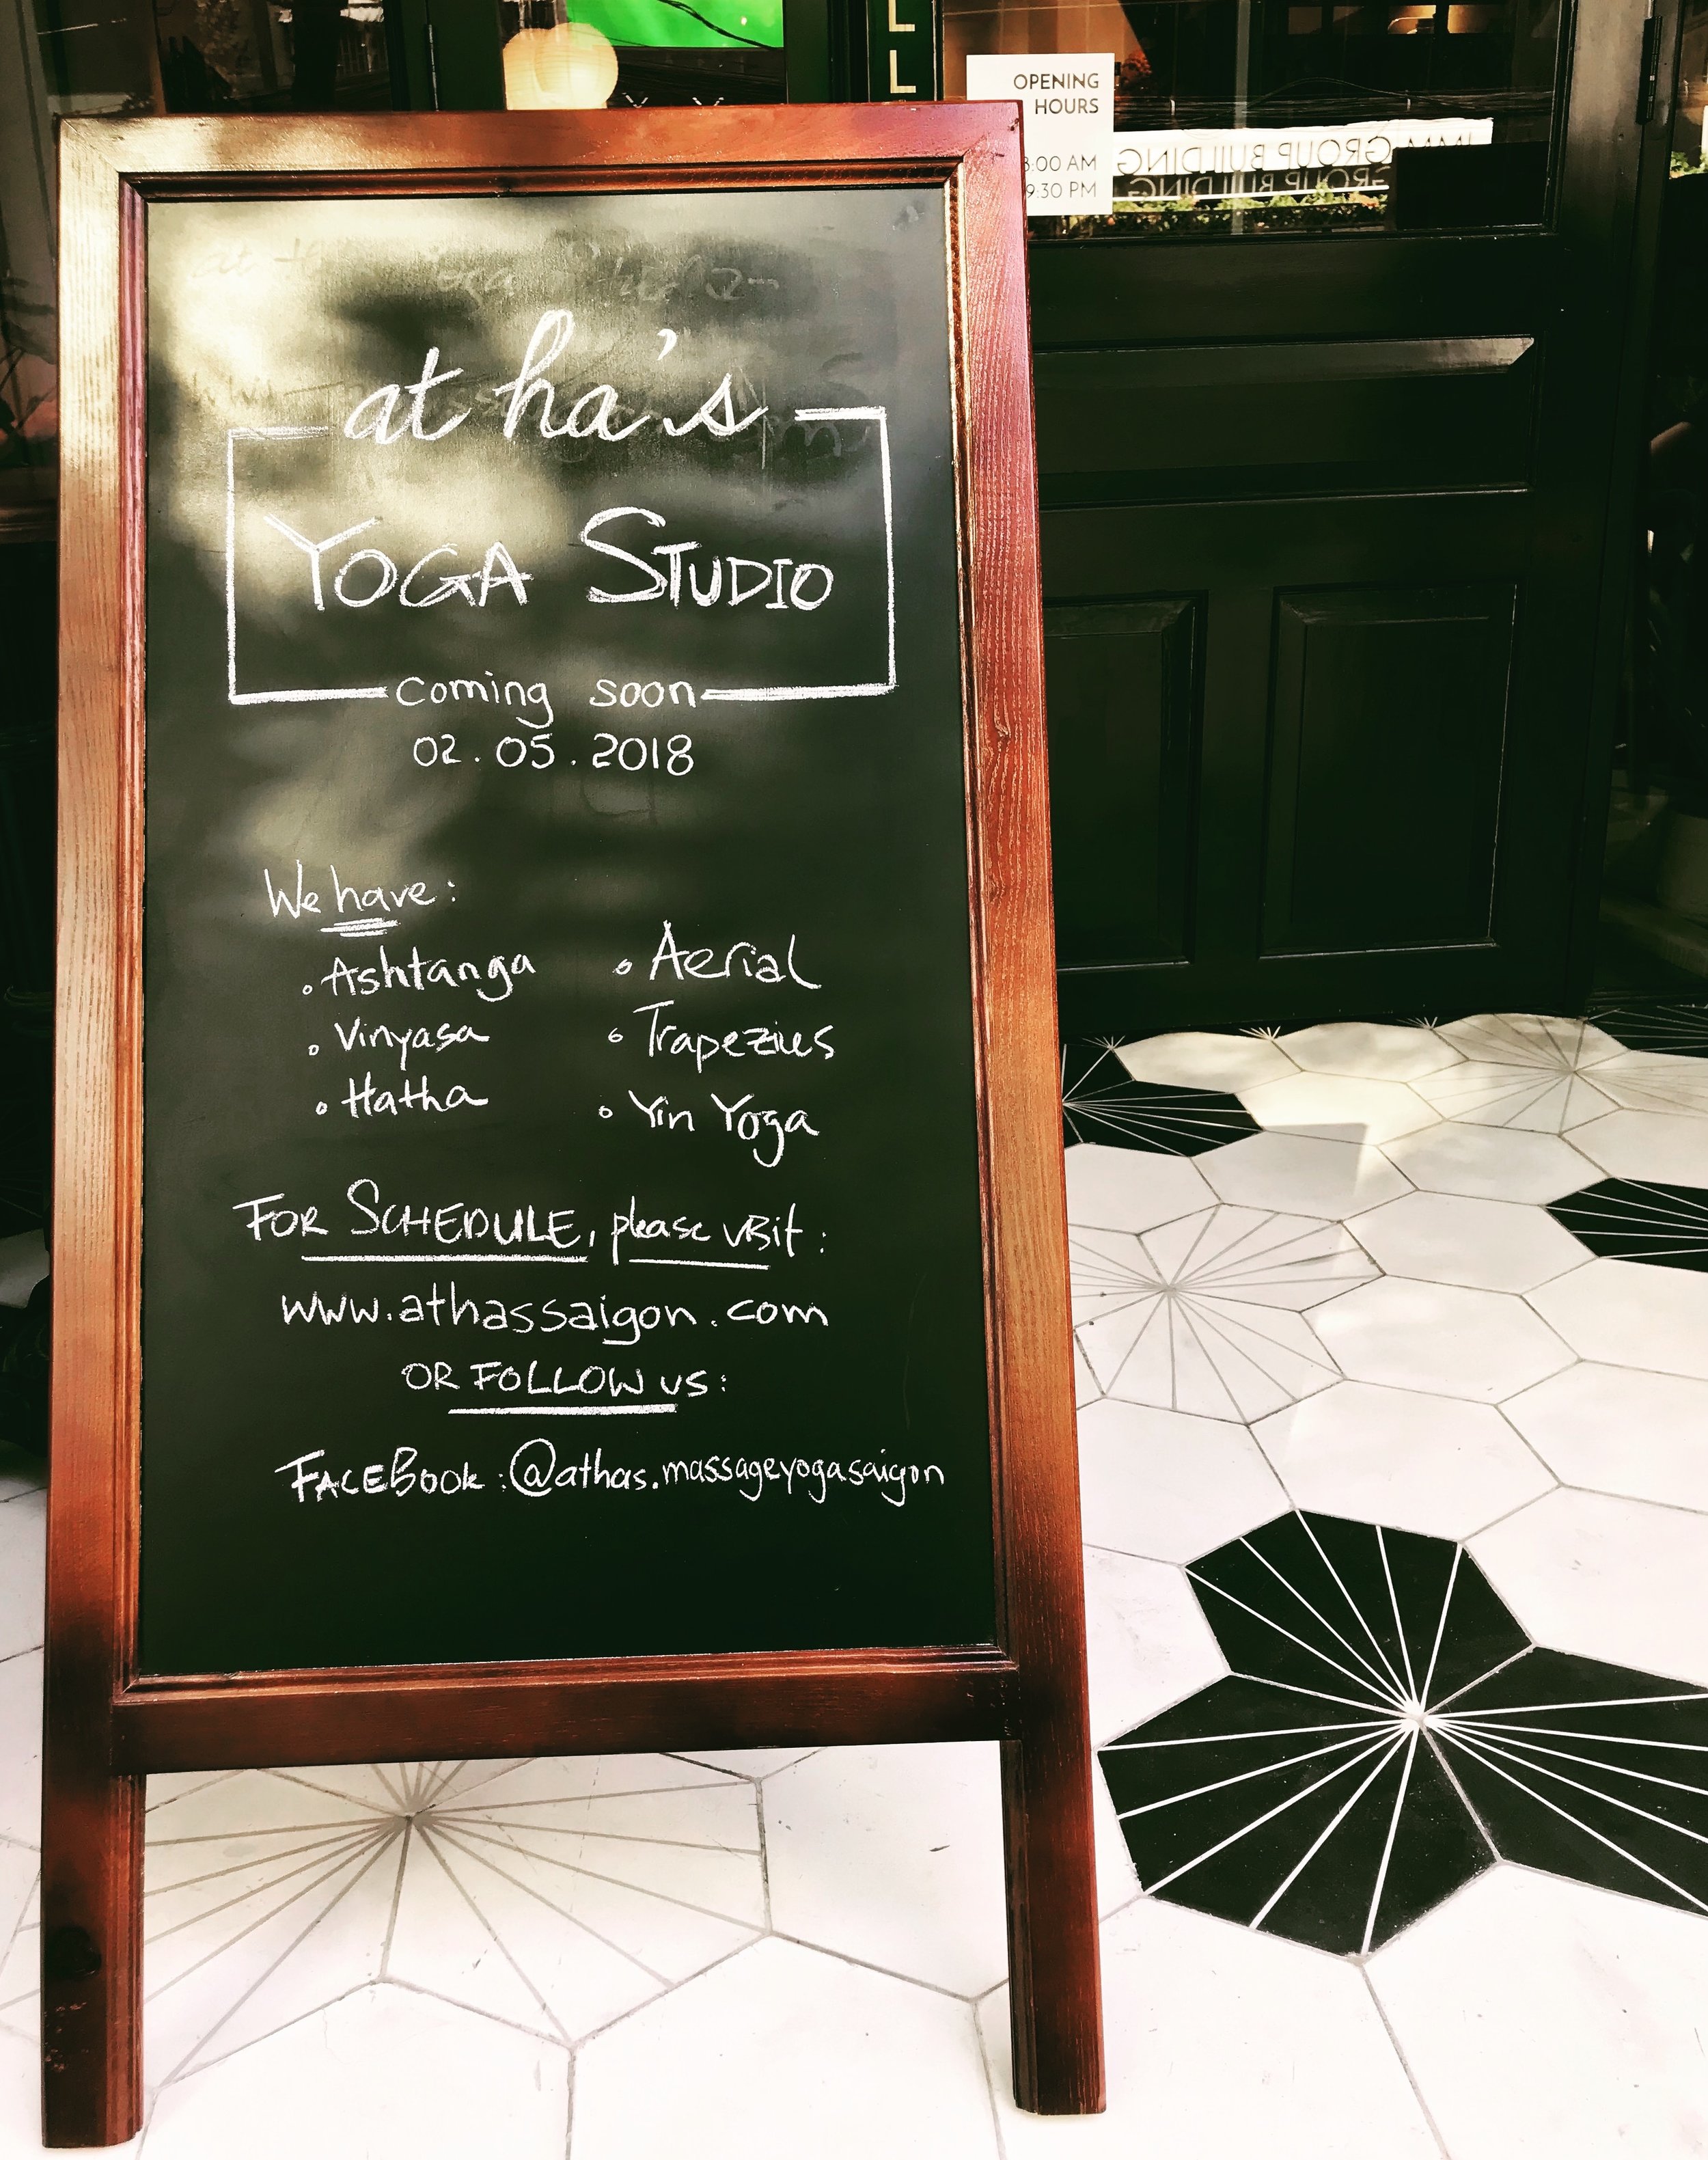 L
L
OPENING
HOURS
:00 AM
9:30 PM
GROUP BUILDING
GROUP BUILDING
at ha's
YOGA STUDIO
coming soon
02.05.2018
We have:
• Ashtanga
• Vinyasa
• Hatha
• Aerial
• Trapezius
• Yin Yoga
FOR SCHEDULE, please visit:
www.athassaigon.com
OR FOLLOW US:
FACEBOOK: @athas.massageyogasaigon